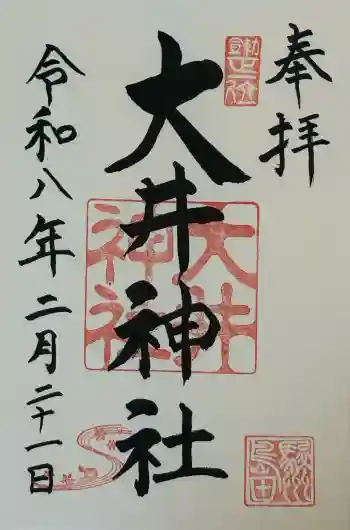 奉拝
大井神社
令和八年二月二十一日
大井神社